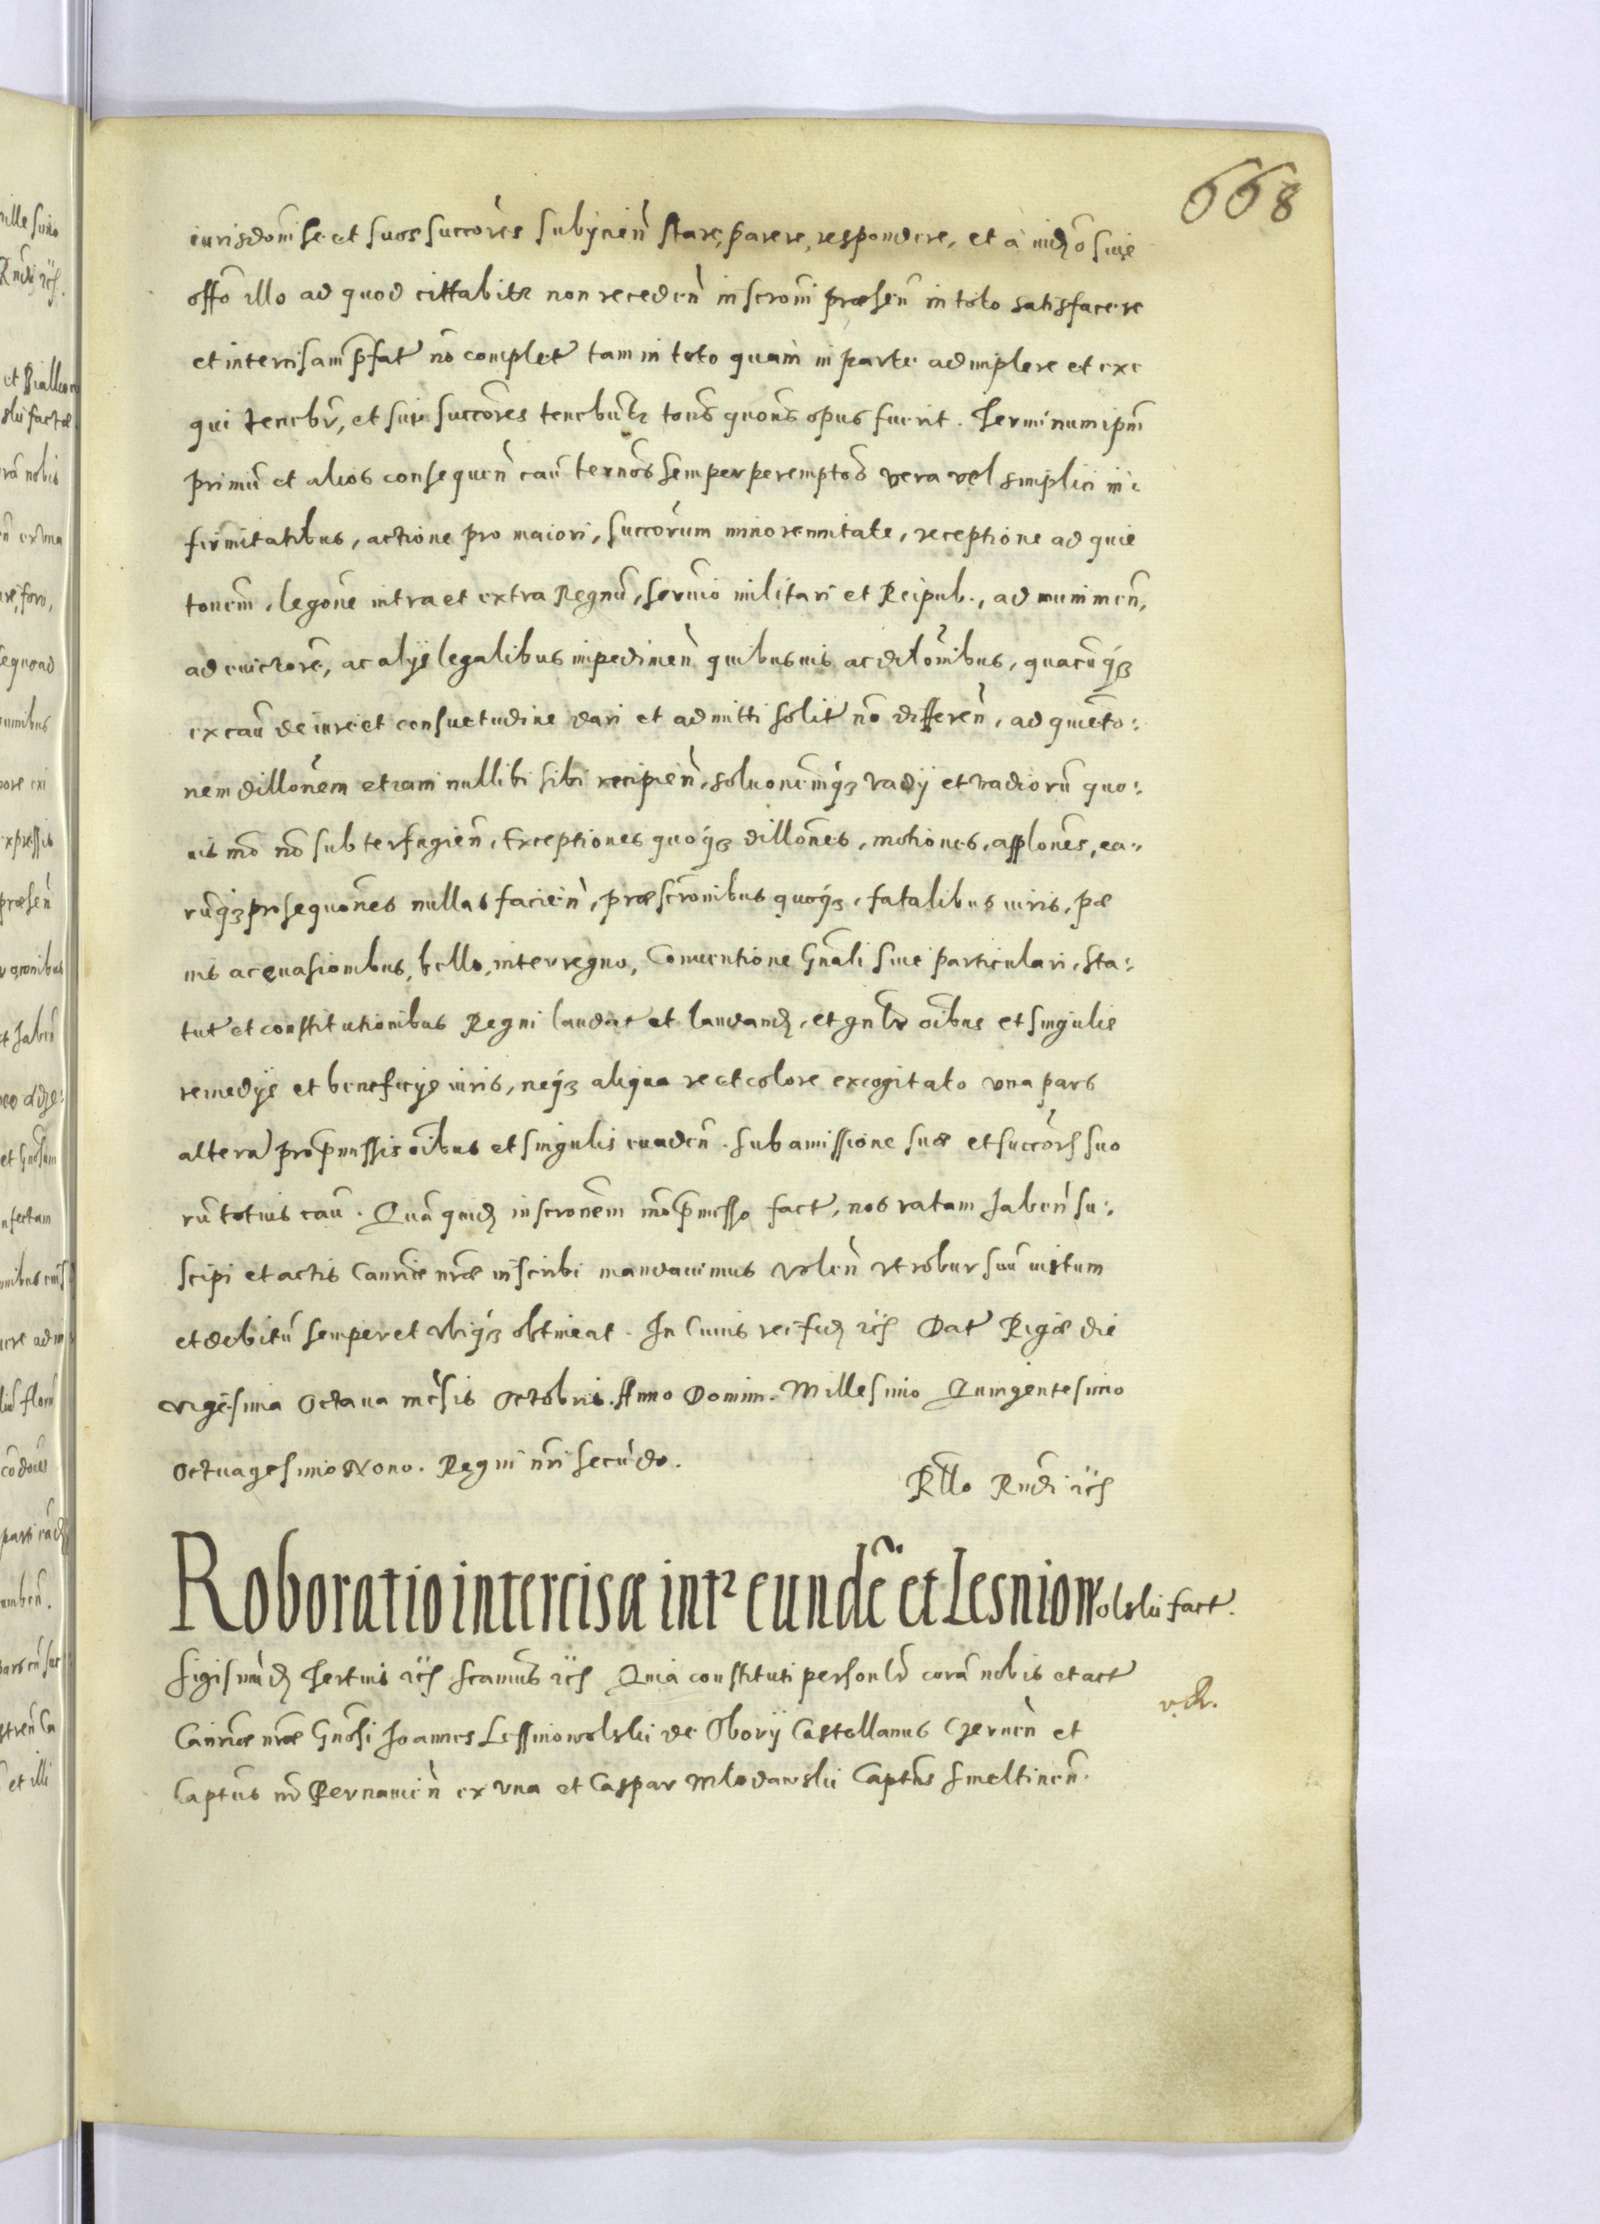 668
iurisdoni se et suos succores subijcien stare, parere, respondere, et a iudo siue
offo illo ad quod cittabitr non receden inscroni præsen in toto satisfacere
et intercisam pfat no complet tam in toto quam in parte adimplere et exe
qui tenebr, et sui succores tenebuntr totis quotis opus fuerit. Terminum ipm
primu et alios consequen cau termos semper peremptos vera vel simplici in
firmitatibus, actione pro maiori, succorum minorennitate, receptione ad quie
tonem, legone intra et extra Regnu, seruio militari et Reipub., ad munimen,
ad euictore, ac alijs legalibus impedimen quibusuis ac dilonibus, quacuqz
ex cau de iure et consuetudine dari et admitti solit no differen, ad quieto:
nem dillonem etiam nullibi sibi recipien, soluonemqz vadij et vadioru quo:
uis mo no subterfugien, Exceptiones quoqz dillones, motiones, applones, ea:
ruqz prosequones nullas facien, præscronibus quoqz, fatalibus iuris, pæ
nis ac euasionibus, bello, interregno, Conuentione Gnali siue particulari, sta:
tut et constitutionibus Regni laudat et laudand, et gnlr oibus et singulis
remedijs et beneficijs iuris, neqz aliqua re et colore excogitato vna pars
altera pro pmissis oibus et singulis euaden. sub amissione suæ et succors suo
ru totius cau. Qua quid inscronem mo pmisso fact, nos ratam haben su:
scipi et actis Canriæ nræ inscribi mandauimus volen vt robur suu iustum
et debitu semper et vbiqz obtineat. In Cuius rei fid etc Dat Rigæ die
vigesima Octaua mesis Octobris. Anno Domini. Millesimo Quingentesimo
Octuagesimo Nono. Regni nri secudo.
Rllo Rndi etc
Roboratio intercisæ intr eunde et Lesniowolski fact.
Sigismud Tertius etc Scamus etc Quia constituti personlr cora nobis et act
v. R.
Canriæ nræ Gnosi Joannes Lessniowolski de Obory Castellanus Czernen et
Captus nr Pernauien ex vna et Caspar Mlodawski Captus Smeltinen.